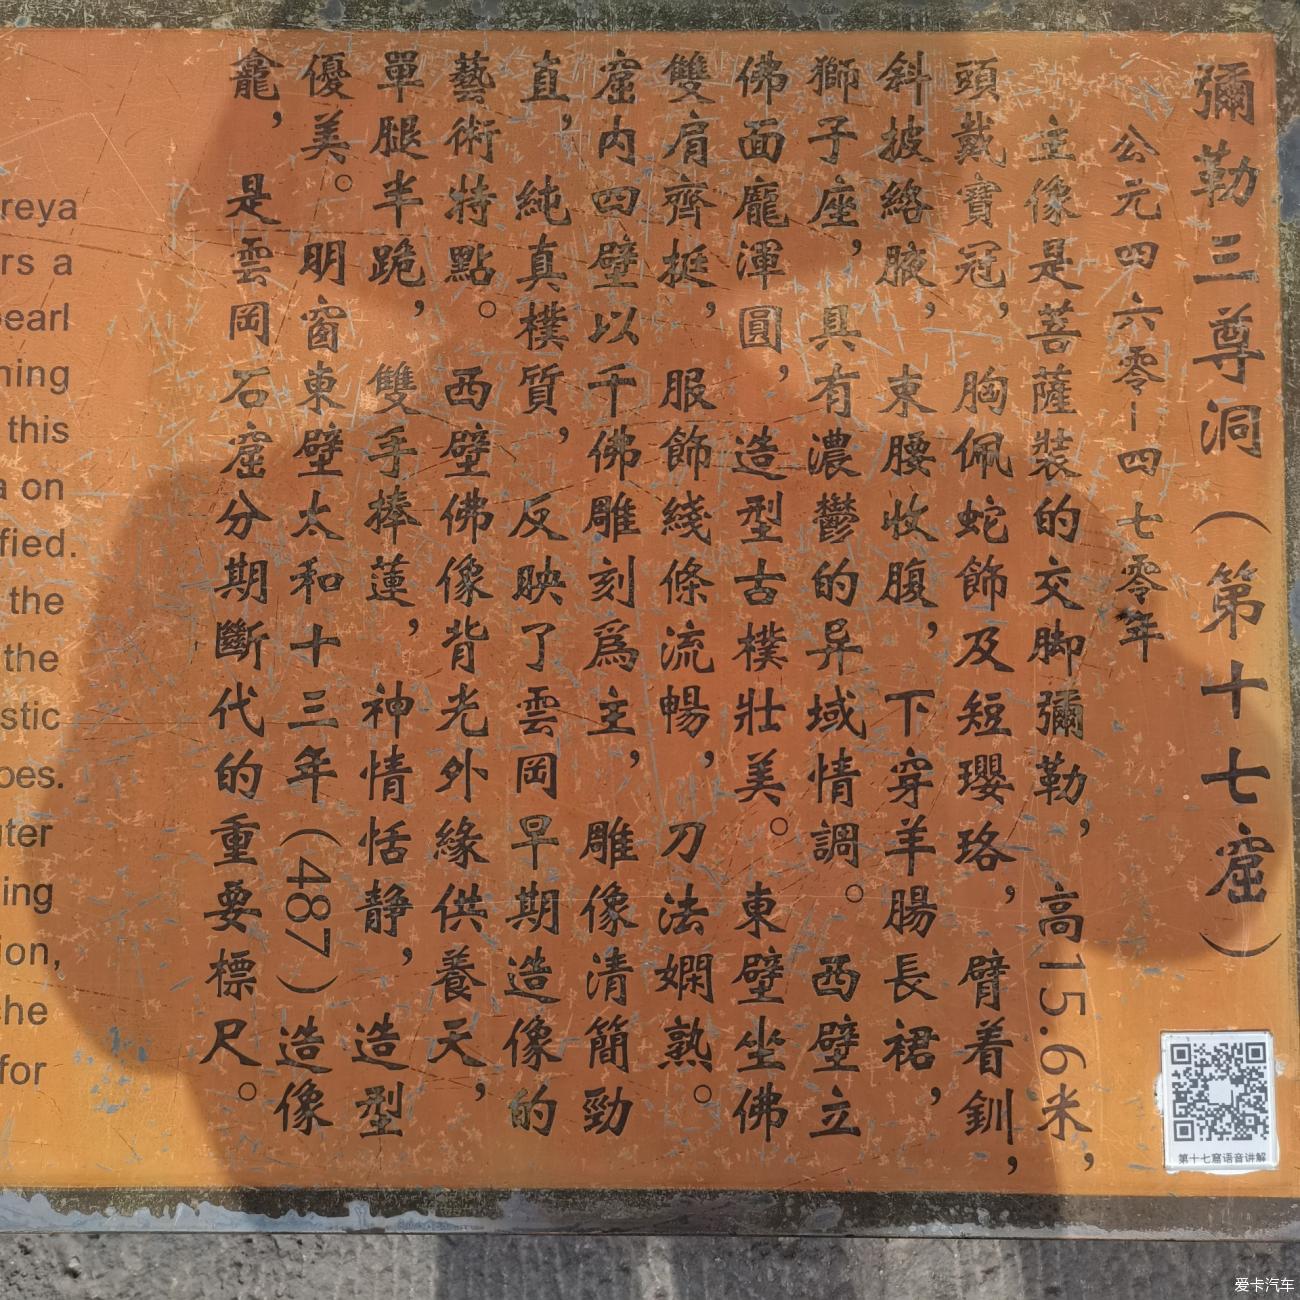 彌勒三尊洞（第十七窟）
公元四六零－四七零年
主像是菩薩裝的交脚彌勒，高15.6米，
頭戴寶冠，胸佩蛇飾及短瓔珞，臂着釧，
斜披絡腋，束腰收腹，下穿羊腸長裙，
獅子座，具有濃鬱的异域情調。西壁立
佛面龐渾圓，造型古樸壯美。東壁坐佛
雙肩齊挺，服飾綫條流暢，刀法嫻熟。
窟内四壁以千佛雕刻爲主，雕像清簡勁
直，純真樸質，反映了雲岡早期造像的
藝術特點。西壁佛像背光外緣供養天，
單腿半跪，雙手捧蓮，神情恬静，造型
優美。明窗東壁太和十三年（487）造像
龕，是雲岡石窟分期斷代的重要標尺。
reya
rs a
pearl
ning
this
a on
fied.
the
the
stic
oes.
ter
ing
ion,
che
for
第十七窟语音讲解
爱卡汽车